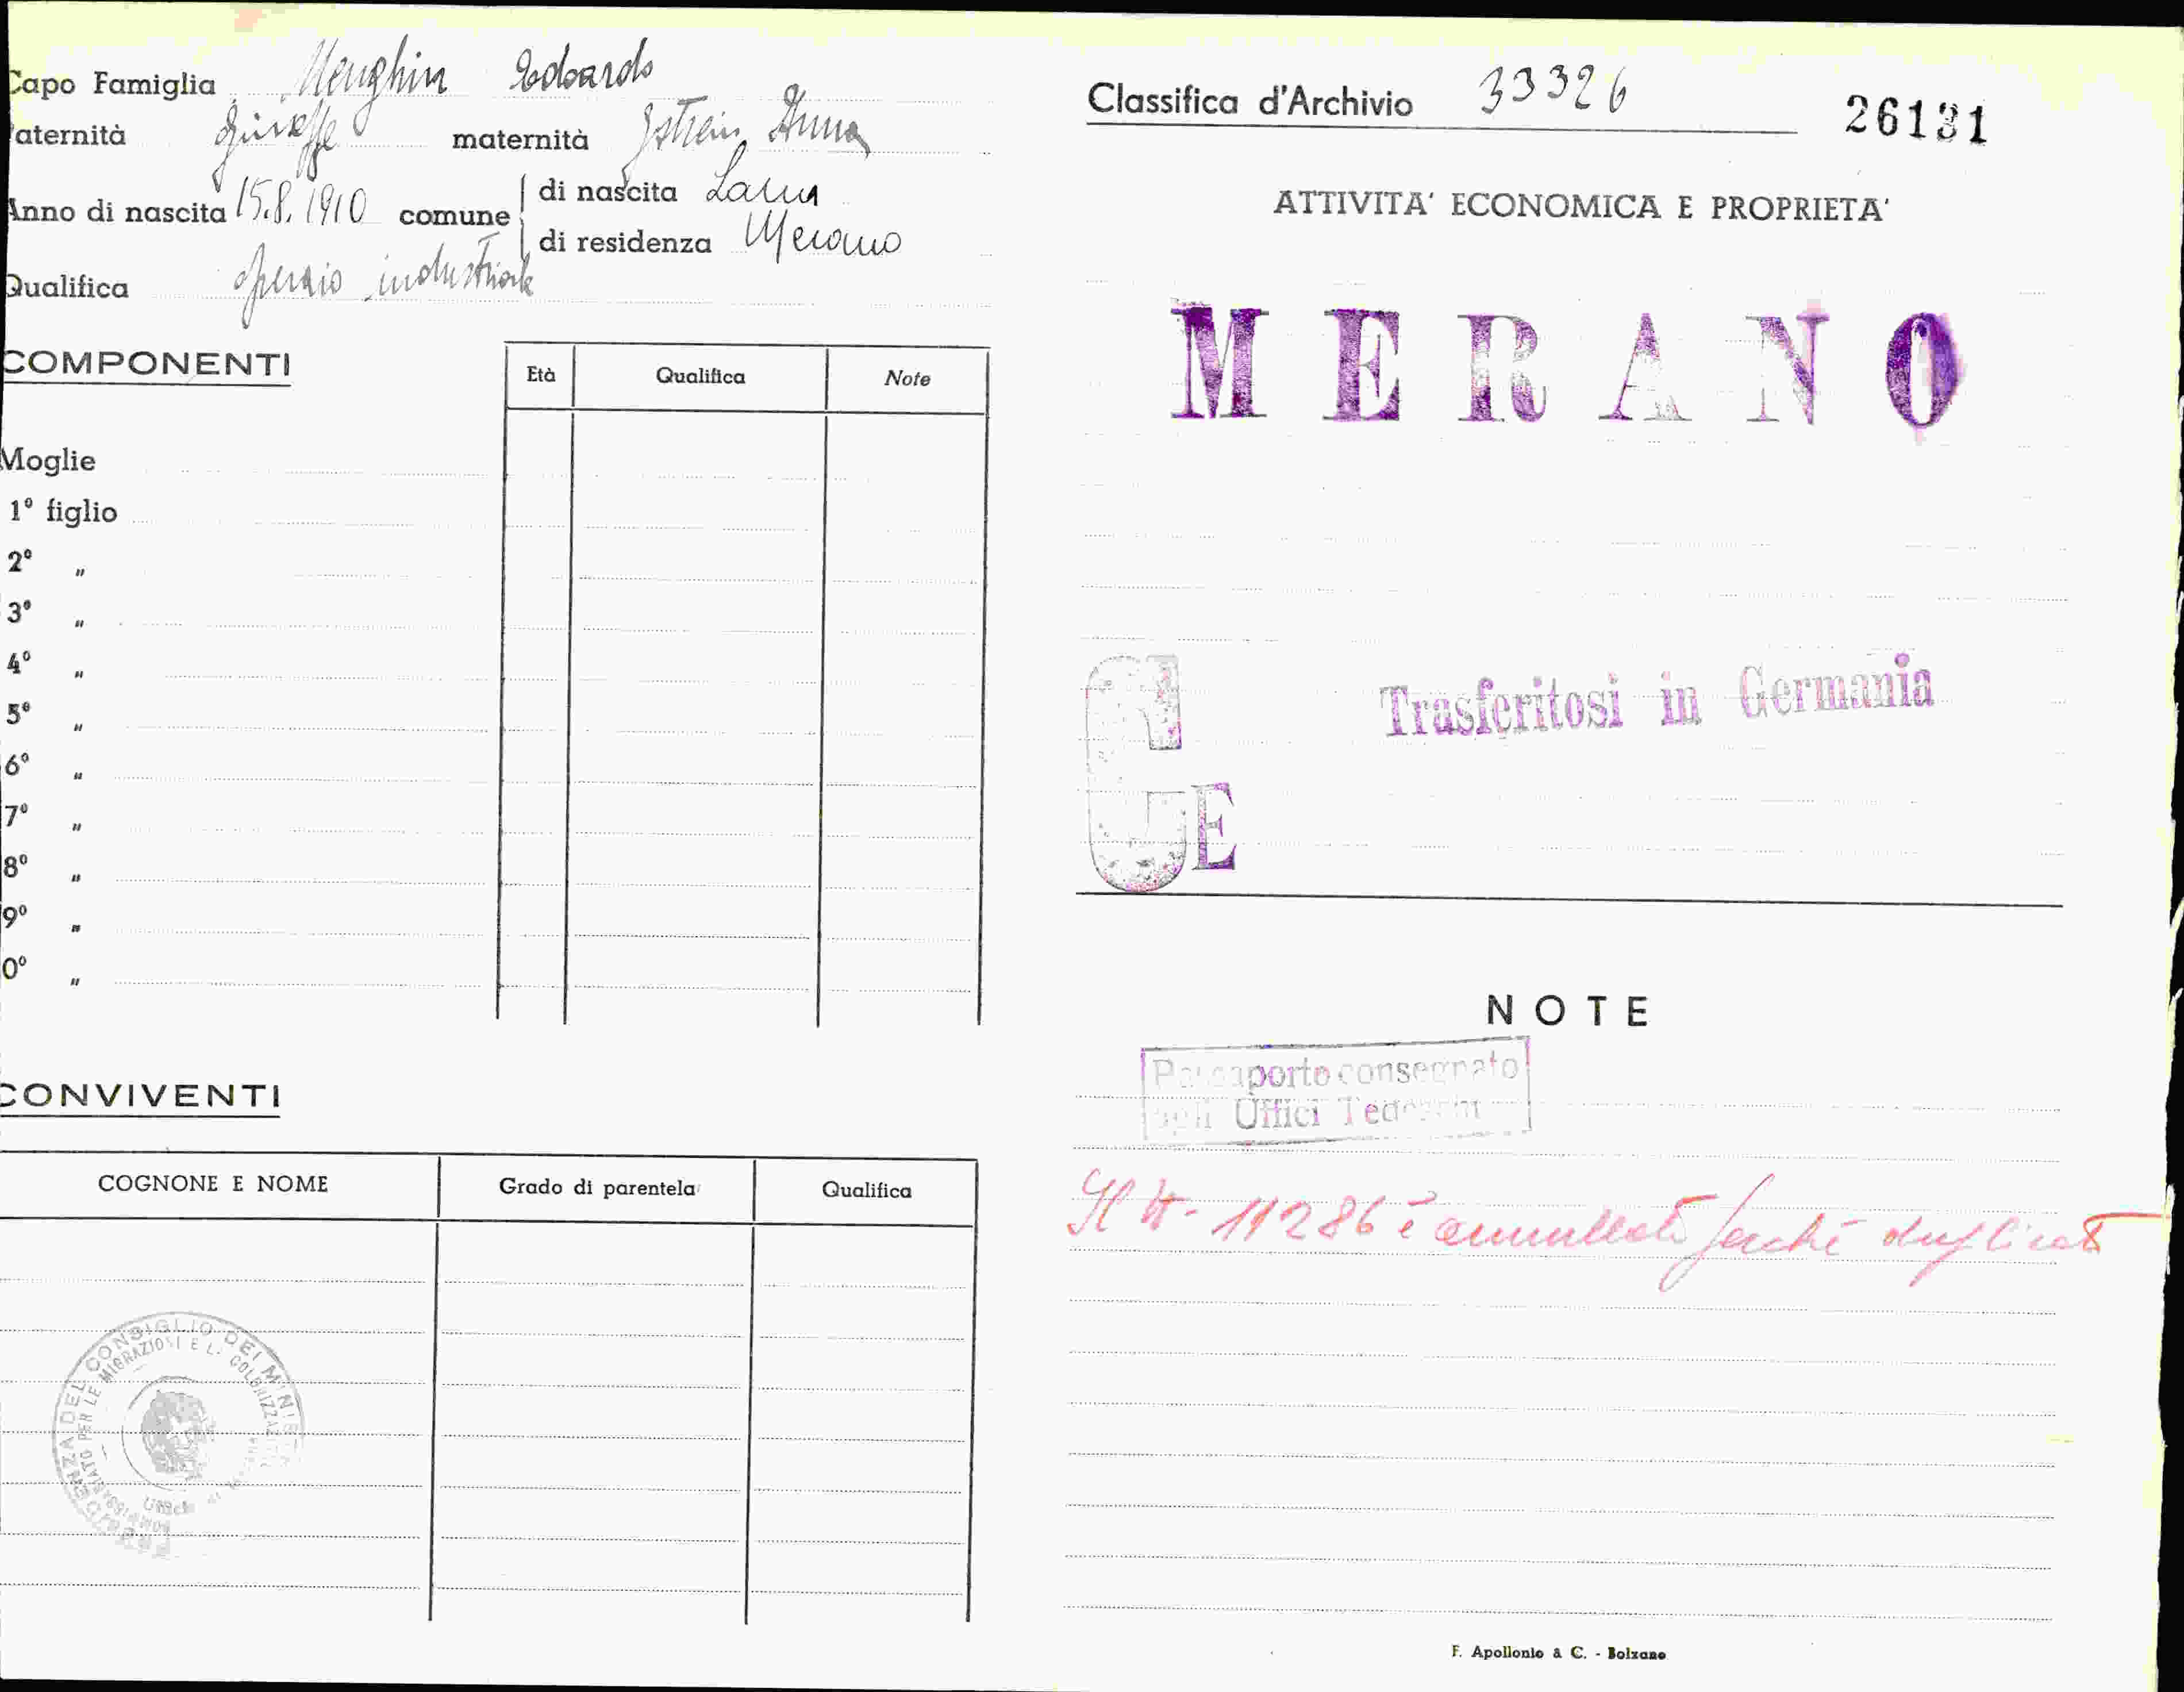 Capo Famiglia Menghin Edoardo
Paternità Giuseppe maternità Gstrein Anna
Anno di nascita 15.8.1910 comune di nascita Lana
di residenza Merano
Qualifica operaio industriale
COMPONENTI
Età Qualifica Note
Moglie
1º figlio
2º "
3º "
4º "
5º "
6º "
7º "
8º "
9º "
0º "
CONVIVENTI
COGNONE E NOME Grado di parentela Qualifica
CONSIGLIO DEI MINIS
PER LE MIGRAZIONI E L. COLONIZZAZ
Classifica d'Archivio 33326 26131
ATTIVITA' ECONOMICA E PROPRIETA'
MERANO
Trasferitosi in Germania
G
E
NOTE
Passaporto consegnato
agli Uffici Tedeschi
Il N. 11286 è annullato perché duplicato
F. Apollonio & C. - Bolzano